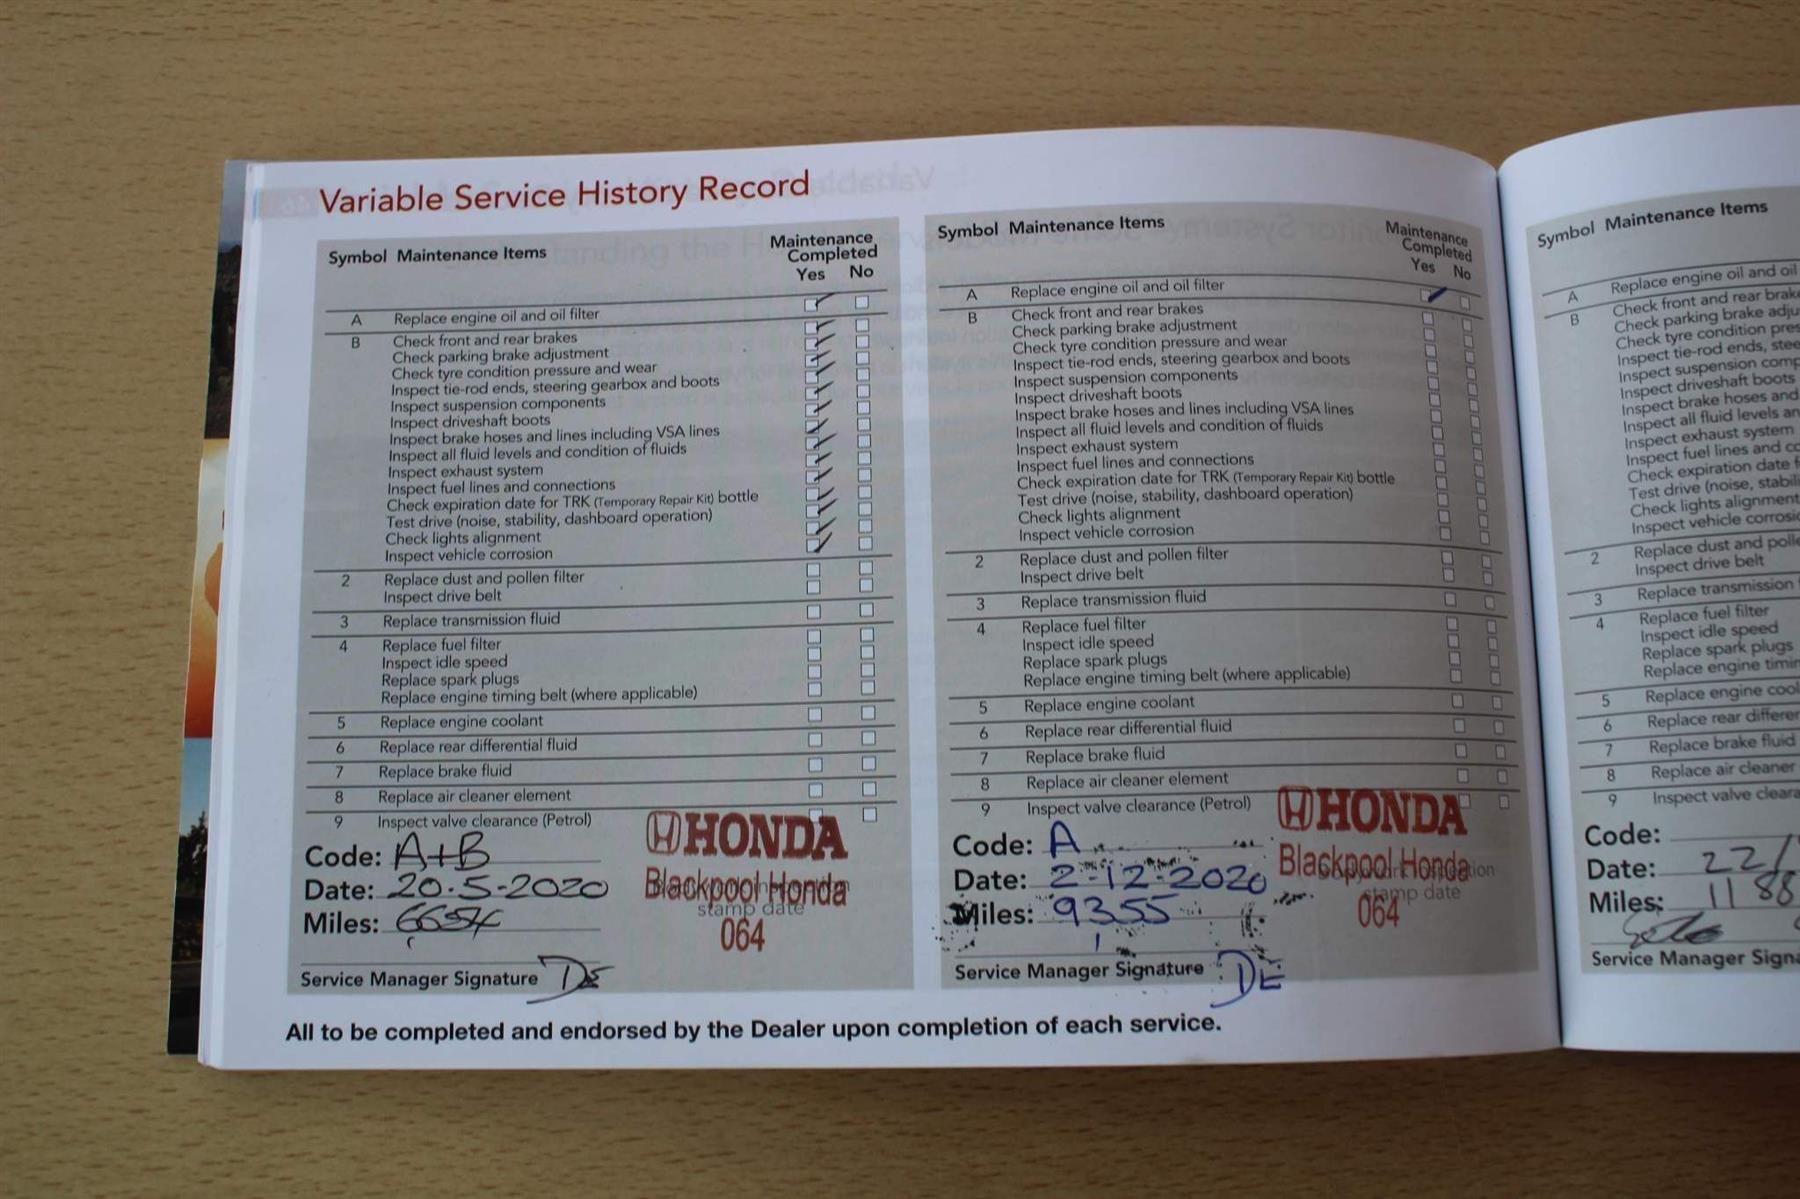 Variable Service History Record
Symbol Maintenance Items
Maintenance
Completed
Yes No
A Replace engine oil and oil filter
B Check front and rear brakes
Check parking brake adjustment
Check tyre condition pressure and wear
Inspect tie-rod ends, steering gearbox and boots
Inspect suspension components
Inspect driveshaft boots
Inspect brake hoses and lines including VSA lines
Inspect all fluid levels and condition of fluids
Inspect exhaust system
Inspect fuel lines and connections
Check expiration date for TRK (Temporary Repair Kit) bottle
Test drive (noise, stability, dashboard operation)
Check lights alignment
Inspect vehicle corrosion
2 Replace dust and pollen filter
Inspect drive belt
3 Replace transmission fluid
4 Replace fuel filter
Inspect idle speed
Replace spark plugs
Replace engine timing belt (where applicable)
5 Replace engine coolant
6 Replace rear differential fluid
7 Replace brake fluid
8 Replace air cleaner element
9 Inspect valve clearance (Petrol)
Code: A+B
Date: 20·5-2020
Miles:
HONDA
Blackpool Honda
stamp date
064
Service Manager Signature DE
Symbol Maintenance Items
Maintenance
Completed
Yes No
A Replace engine oil and oil filter
B Check front and rear brakes
Check parking brake adjustment
Check tyre condition pressure and wear
Inspect tie-rod ends, steering gearbox and boots
Inspect suspension components
Inspect driveshaft boots
Inspect brake hoses and lines including VSA lines
Inspect all fluid levels and condition of fluids
Inspect exhaust system
Inspect fuel lines and connections
Check expiration date for TRK (Temporary Repair Kit) bottle
Test drive (noise, stability, dashboard operation)
Check lights alignment
Inspect vehicle corrosion
2 Replace dust and pollen filter
Inspect drive belt
3 Replace transmission fluid
4 Replace fuel filter
Inspect idle speed
Replace spark plugs
Replace engine timing belt (where applicable)
5 Replace engine coolant
6 Replace rear differential fluid
7 Replace brake fluid
8 Replace air cleaner element
9 Inspect valve clearance (Petrol)
Code: A
Date: 2-12-2020
Miles: 9355
HONDA
Blackpool Honda
stamp date
064
Service Manager Signature DE
All to be completed and endorsed by the Dealer upon completion of each service.
Symbol Maintenance Items
A Replace engine oil and oil
B Check front and rear brake
Check parking brake adju
Check tyre condition pres
Inspect tie-rod ends, stee
Inspect suspension comp
Inspect driveshaft boots
Inspect brake hoses and
Inspect all fluid levels an
Inspect exhaust system
Inspect fuel lines and co
Check expiration date f
Test drive (noise, stabili
Check lights alignment
Inspect vehicle corrosi
2 Replace dust and polle
Inspect drive belt
3 Replace transmission
4 Replace fuel filter
Inspect idle speed
Replace spark plugs
Replace engine timin
5 Replace engine cool
6 Replace rear differer
7 Replace brake fluid
8 Replace air cleaner
9 Inspect valve cleara
Code:
Date: 22/
Miles: 1188
Service Manager Signa